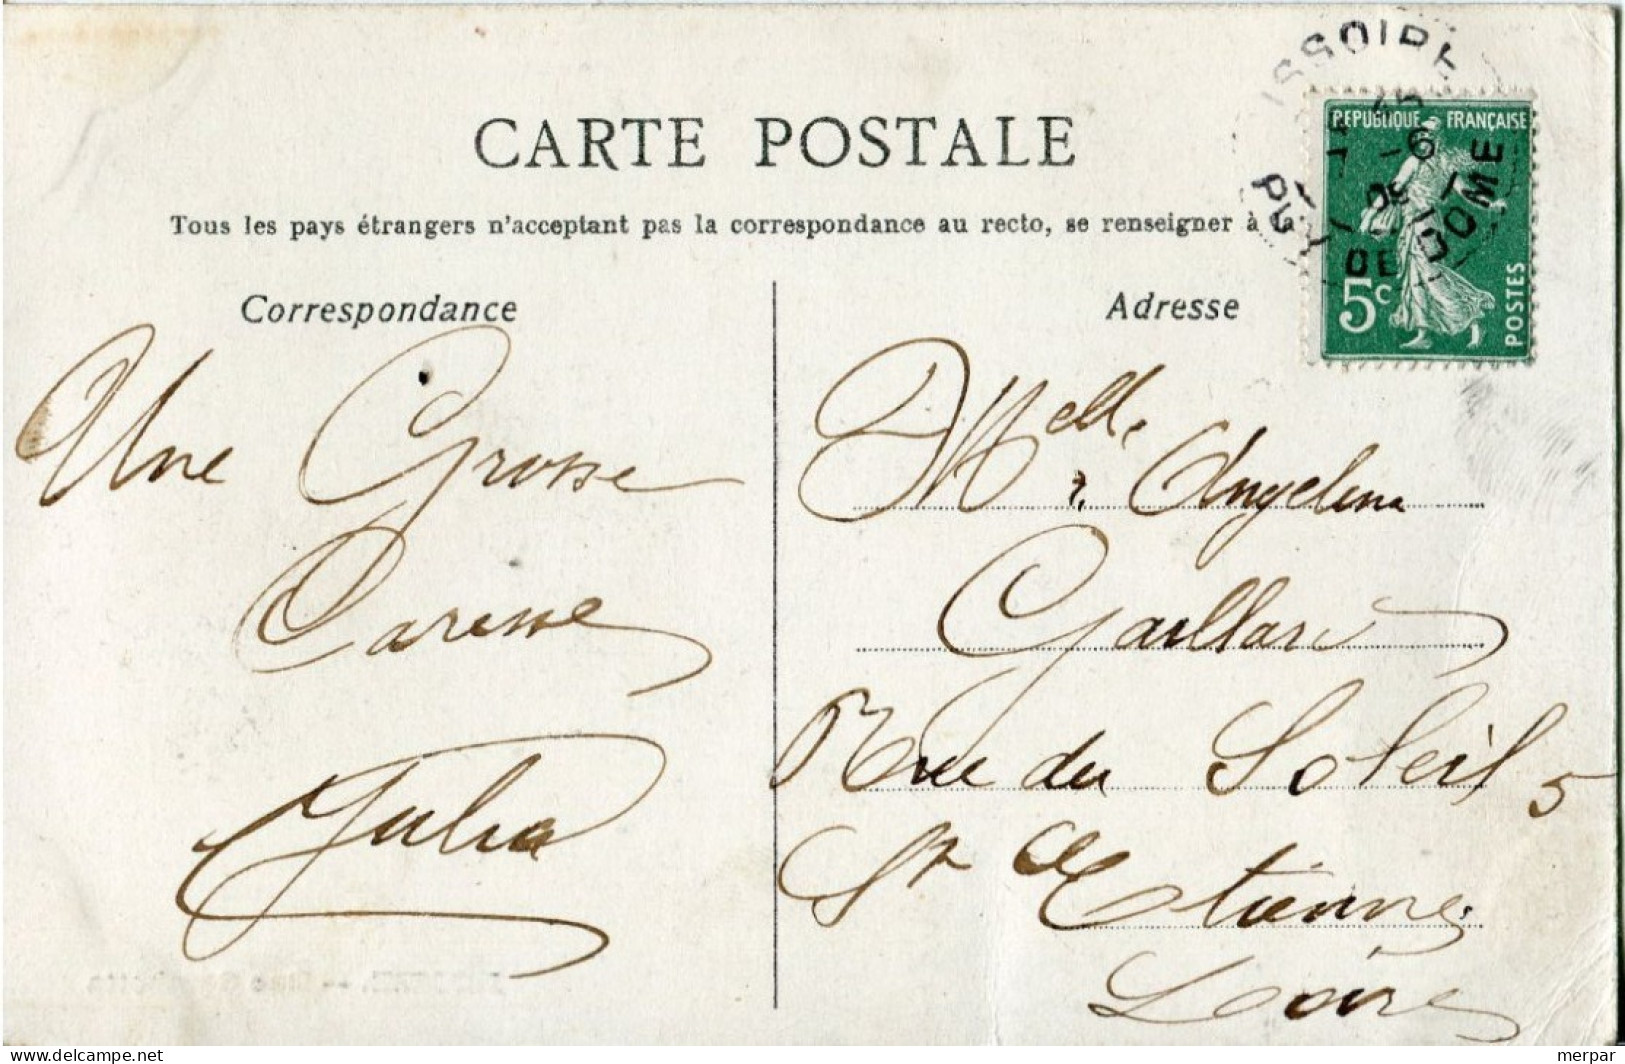 CARTE POSTALE
Tous les pays étrangers n'acceptent pas la correspondance au recto, se renseigner à la
Correspondance
Une Grosse
Caresse
Julia
Adresse
Melle Angelina
Gaillard
Rue du Soleil 5
St Etienne
Loire
ISSOIRE
PUY DE DOME
REPUBLIQUE FRANÇAISE
5c
POSTES
delcampe.net
merpar